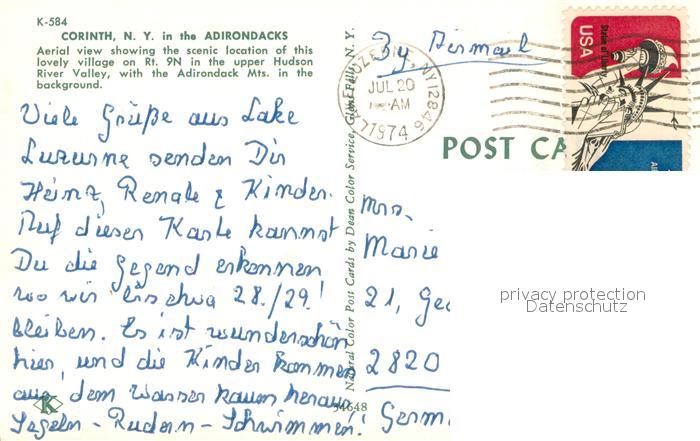 K-584
CORINTH, N. Y. in the ADIRONDACKS
Aerial view showing the scenic location of this
lovely village on Rt. 9N in the upper Hudson
River Valley, with the Adirondack Mts. in the
background.
Viele Grüße aus Lake
Luzurne senden Dir
Heinz, Renate & Kinder.
Auf dieser Karte kannst
Du die Gegend erkennen
wo wir bis etwa 28./29.
bleiben. Es ist wunderschön
hier, und die Kinder kommen
aus dem Wasser kaum heraus!
Segeln - Rudern - Schwimmen!
K
34648
Natural Color Post Cards by Dean Color Service, Glens Falls, N. Y.
By Airmail
LAKE LUZERNE, NY 12846
JUL 20
AM
1974
USA
Statue of Liberty
POST CA
Mrs.
Marie
21, Ge
2820
Germ
privacy protection
Datenschutz